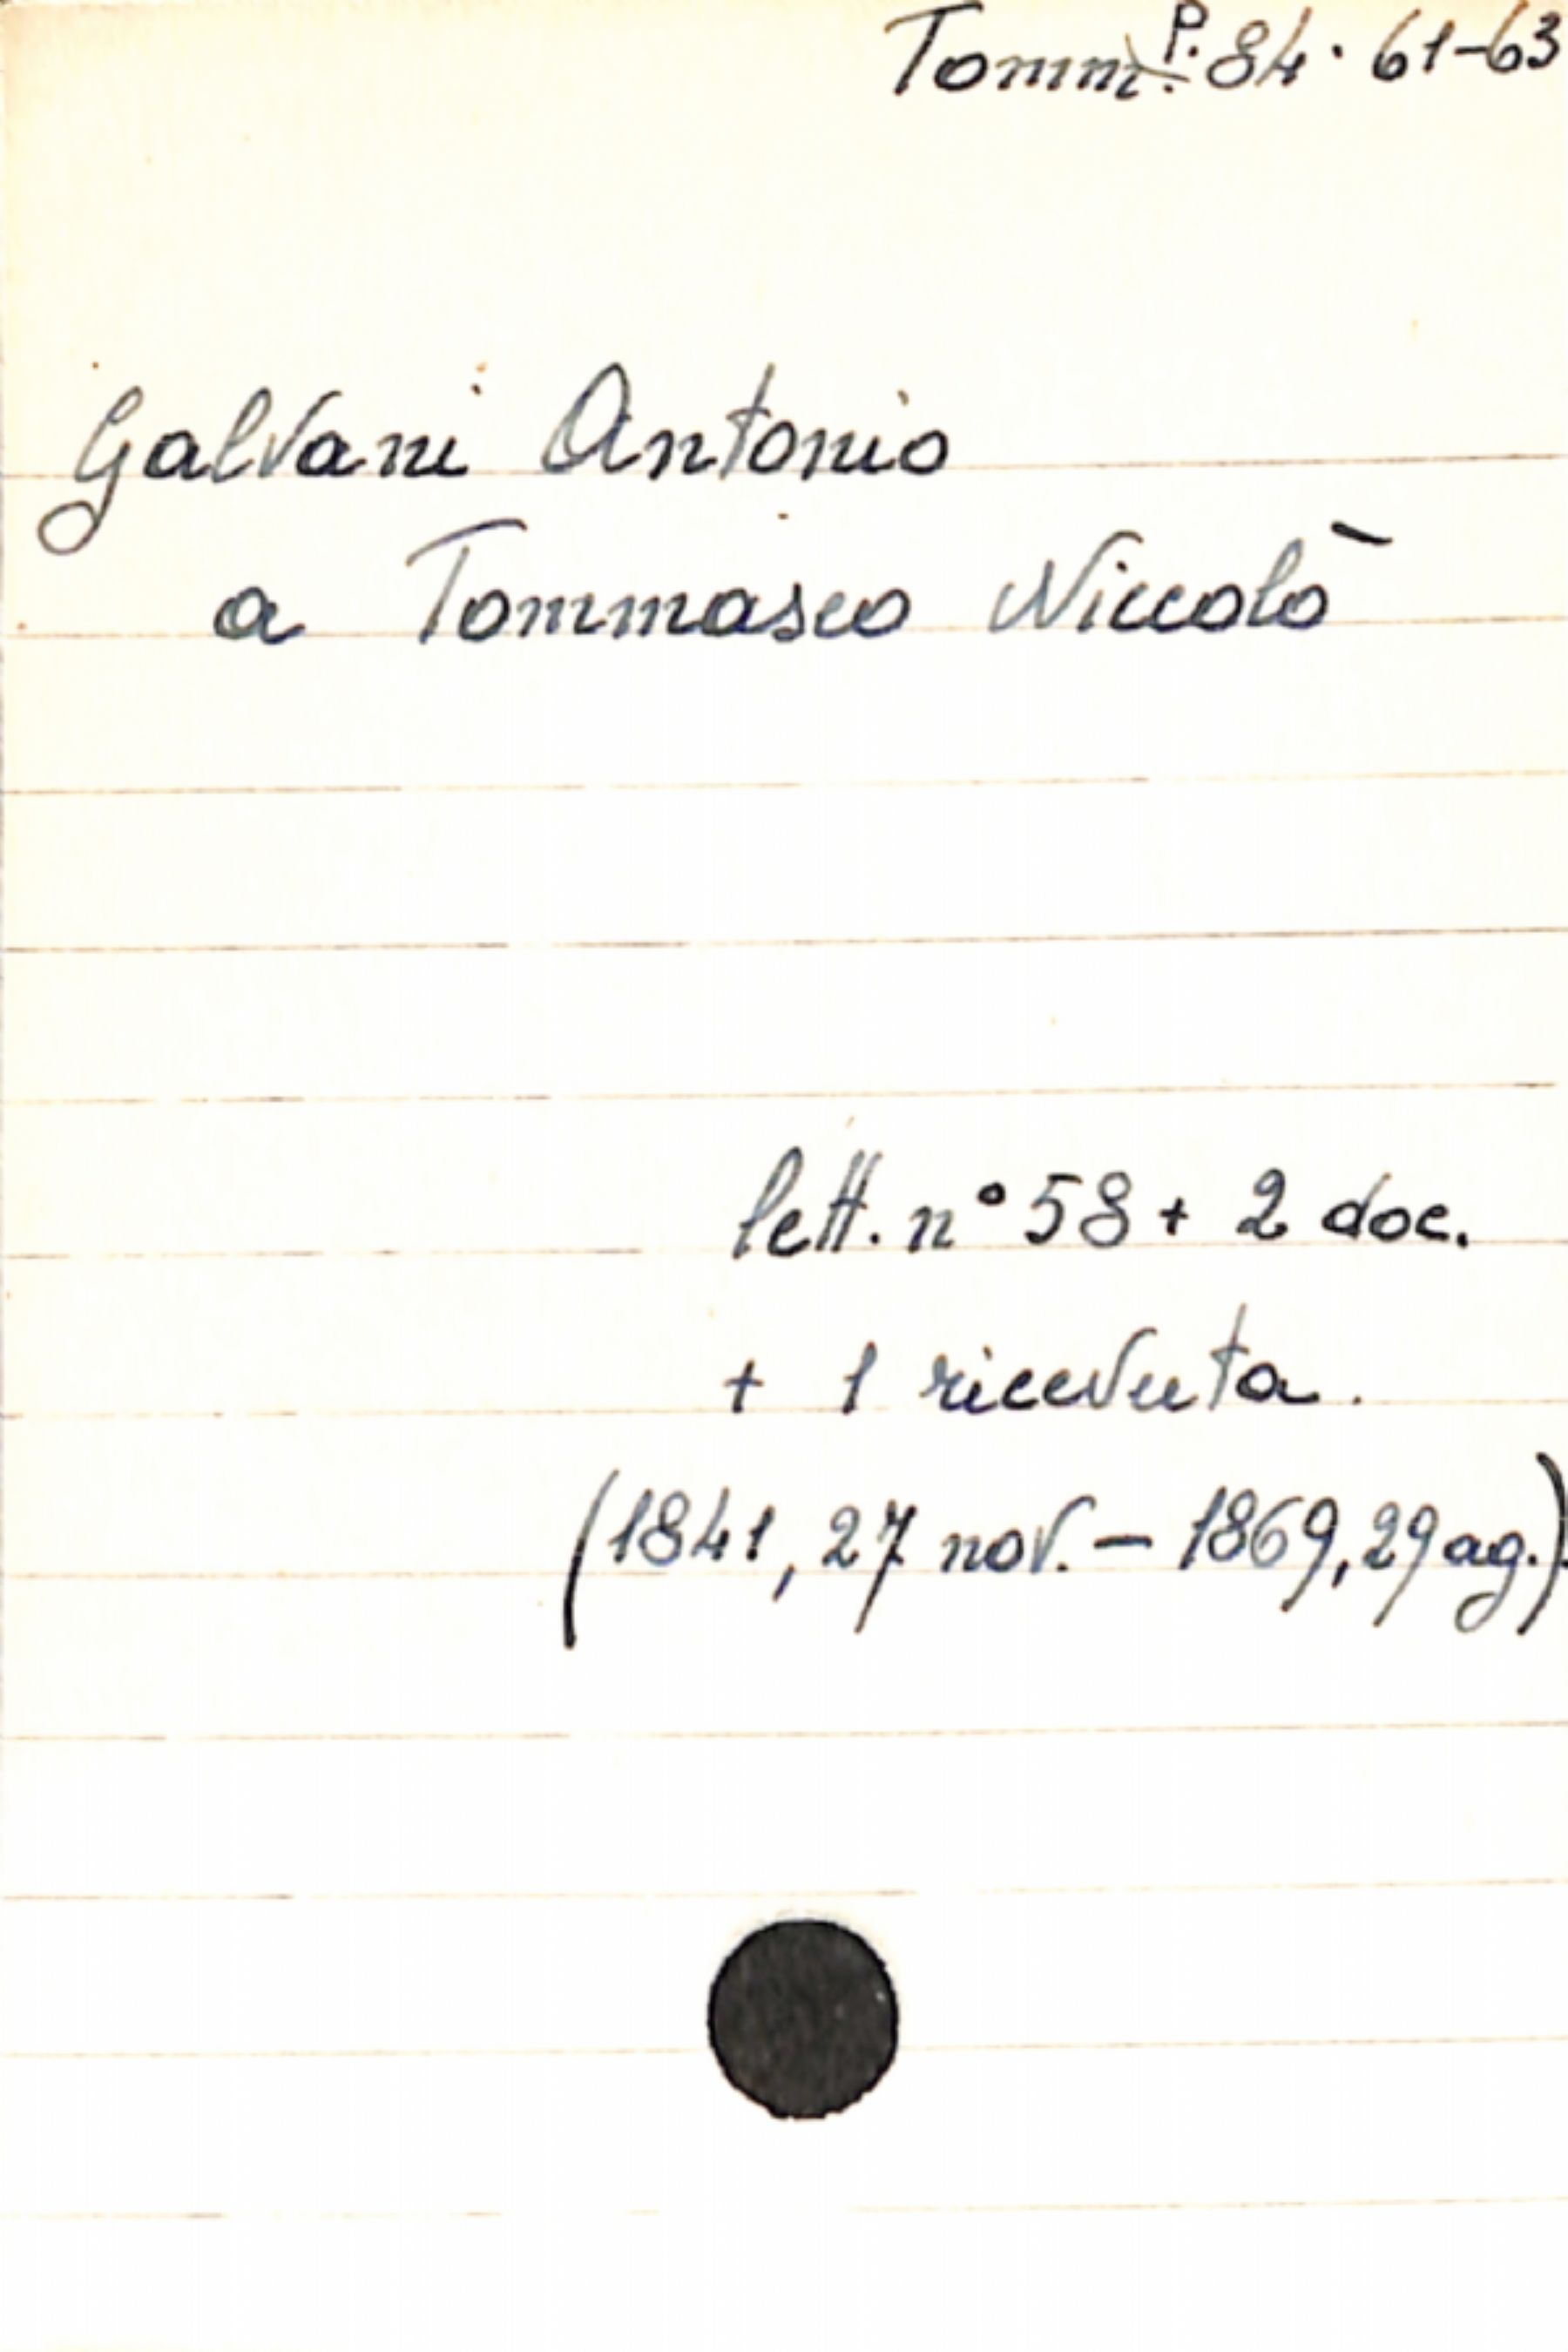 Tomm. P. 84. 61-63
Galvani Antonio
a Tommaseo Niccolò
lett. n° 58 + 2 doc.
+ 1 ricevuta.
(1841, 27 nov. - 1869, 29 ag.).